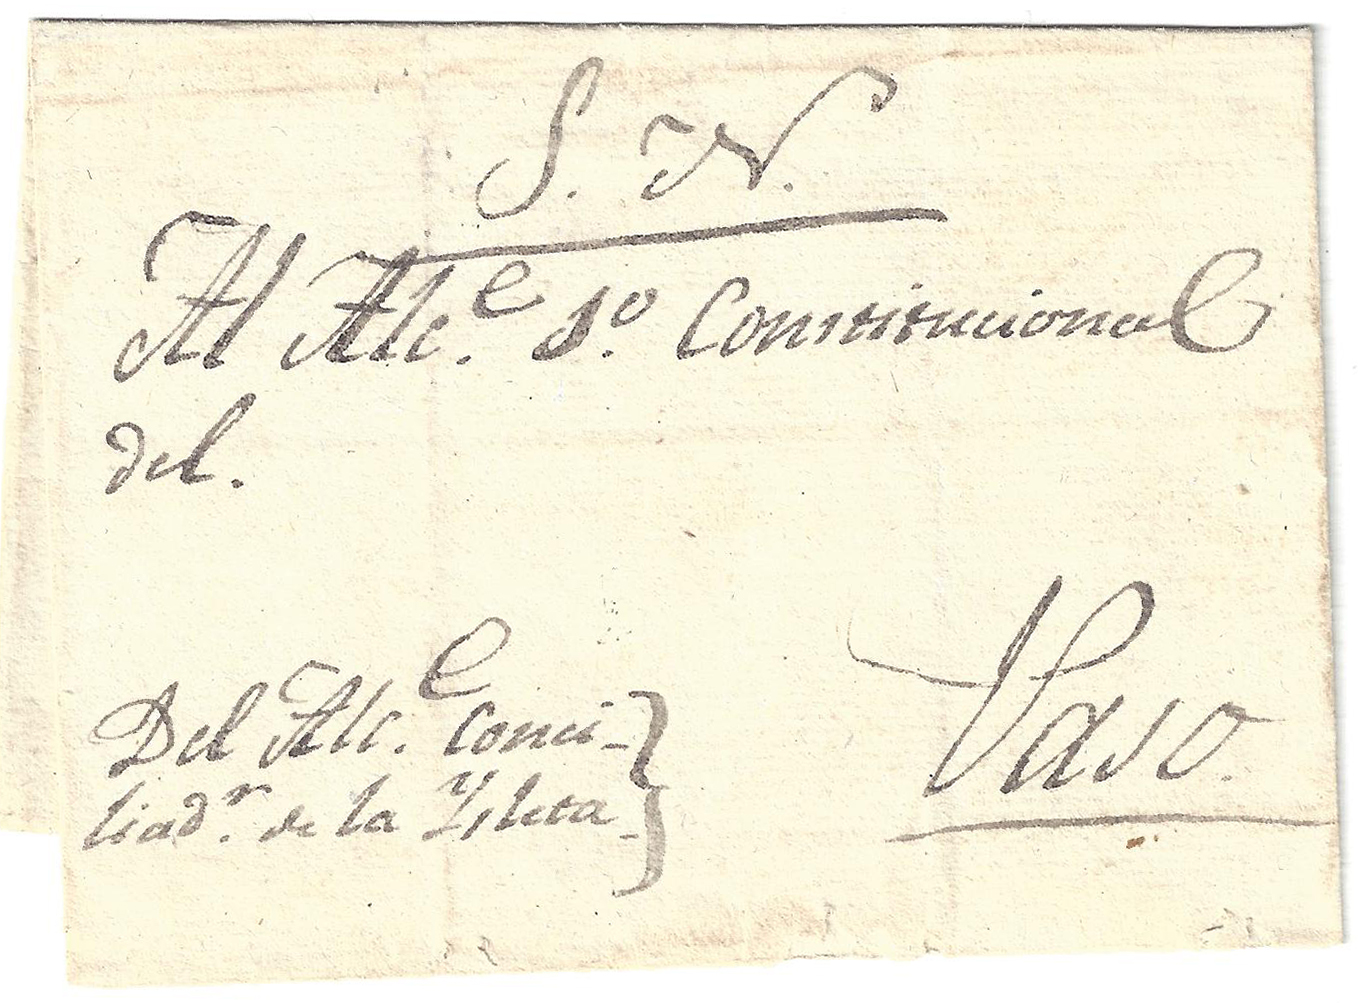 S. N.
Al Alc.e 1o. Constitucional
del.
Paso.
Del Alc.e conci-
liad.r de la Ysleta-